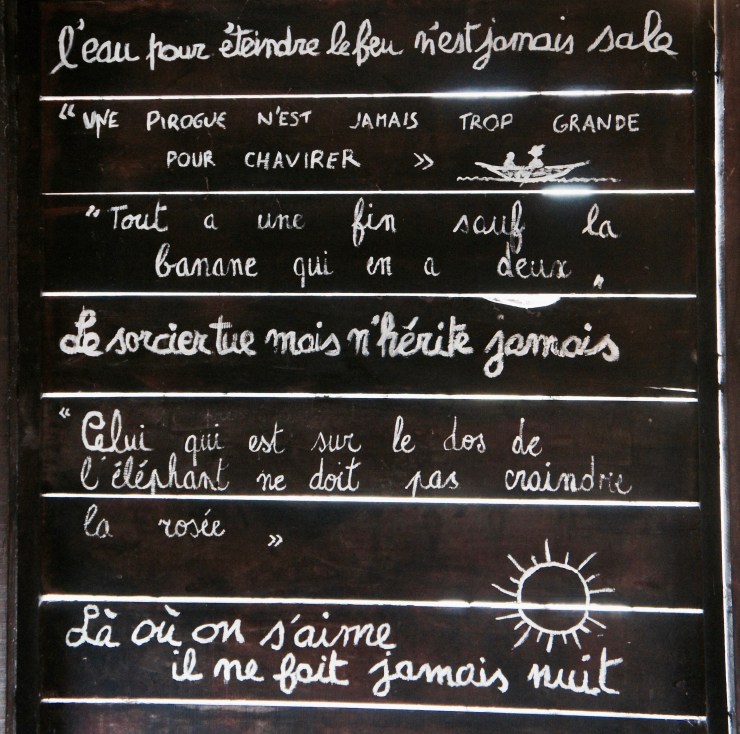 l'eau pour éteindre le feu n'est jamais sale
« UNE PIROGUE N'EST JAMAIS TROP GRANDE
POUR CHAVIRER »
" Tout a une fin sauf la
banane qui en a deux "
Le sorcier tue mais n'hérite jamais
" Celui qui est sur le dos de
l'éléphant ne doit pas craindre
la rosée »
Là où on s'aime
il ne fait jamais nuit